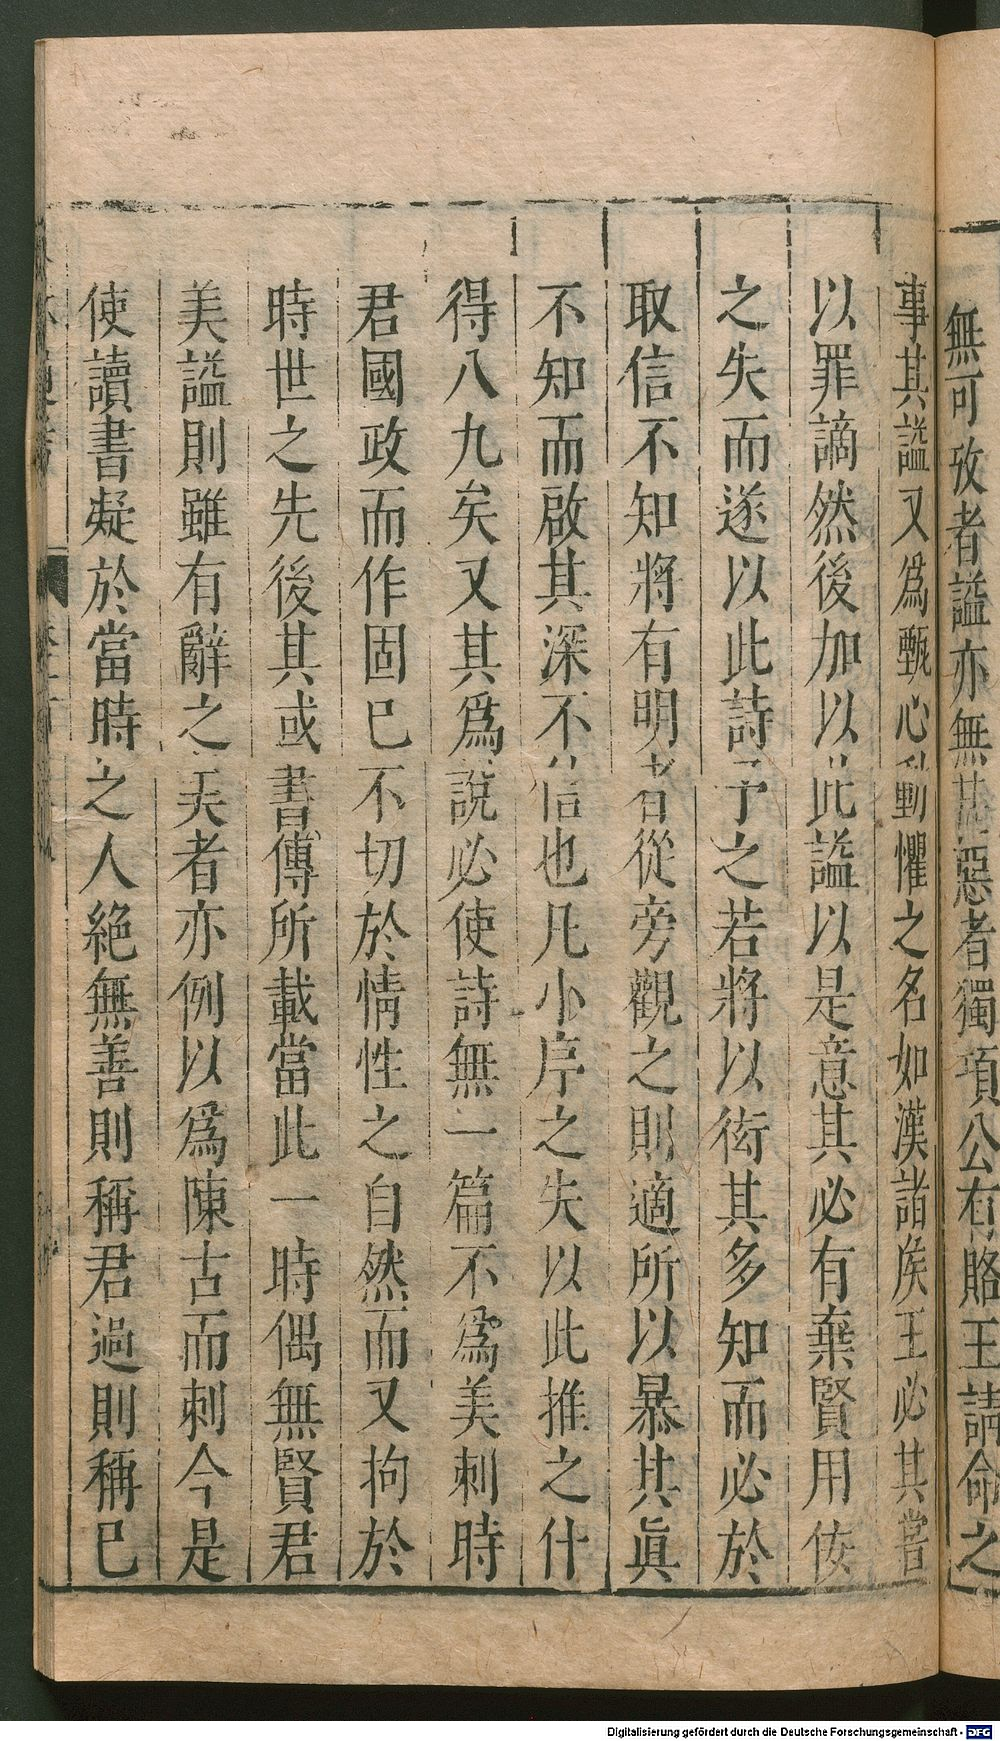 無可攷者謚亦無甚惡者獨頃公有賂王請命之
事其謚又爲甄心動懼之名如漢諸侯王必其嘗
以罪謫然後加以此謚以是意其必有棄賢用佞
之失而遂以此詩予之若將以衒其多知而必於
取信不知將有明者從旁觀之則適所以暴其眞
不知而啟其深不信也凡小序之失以此推之什
得八九矣又其爲說必使詩無一篇不爲美刺時
君國政而作固已不切於情性之自然而又拘於
時世之先後其或書傳所載當此一時偶無賢君
美謚則雖有辭之美者亦例以爲陳古而刺今是
使讀書疑於當時之人絕無善則稱君過則稱已
Digitalisierung gefördert durch die Deutsche Forschungsgemeinschaft - DFG